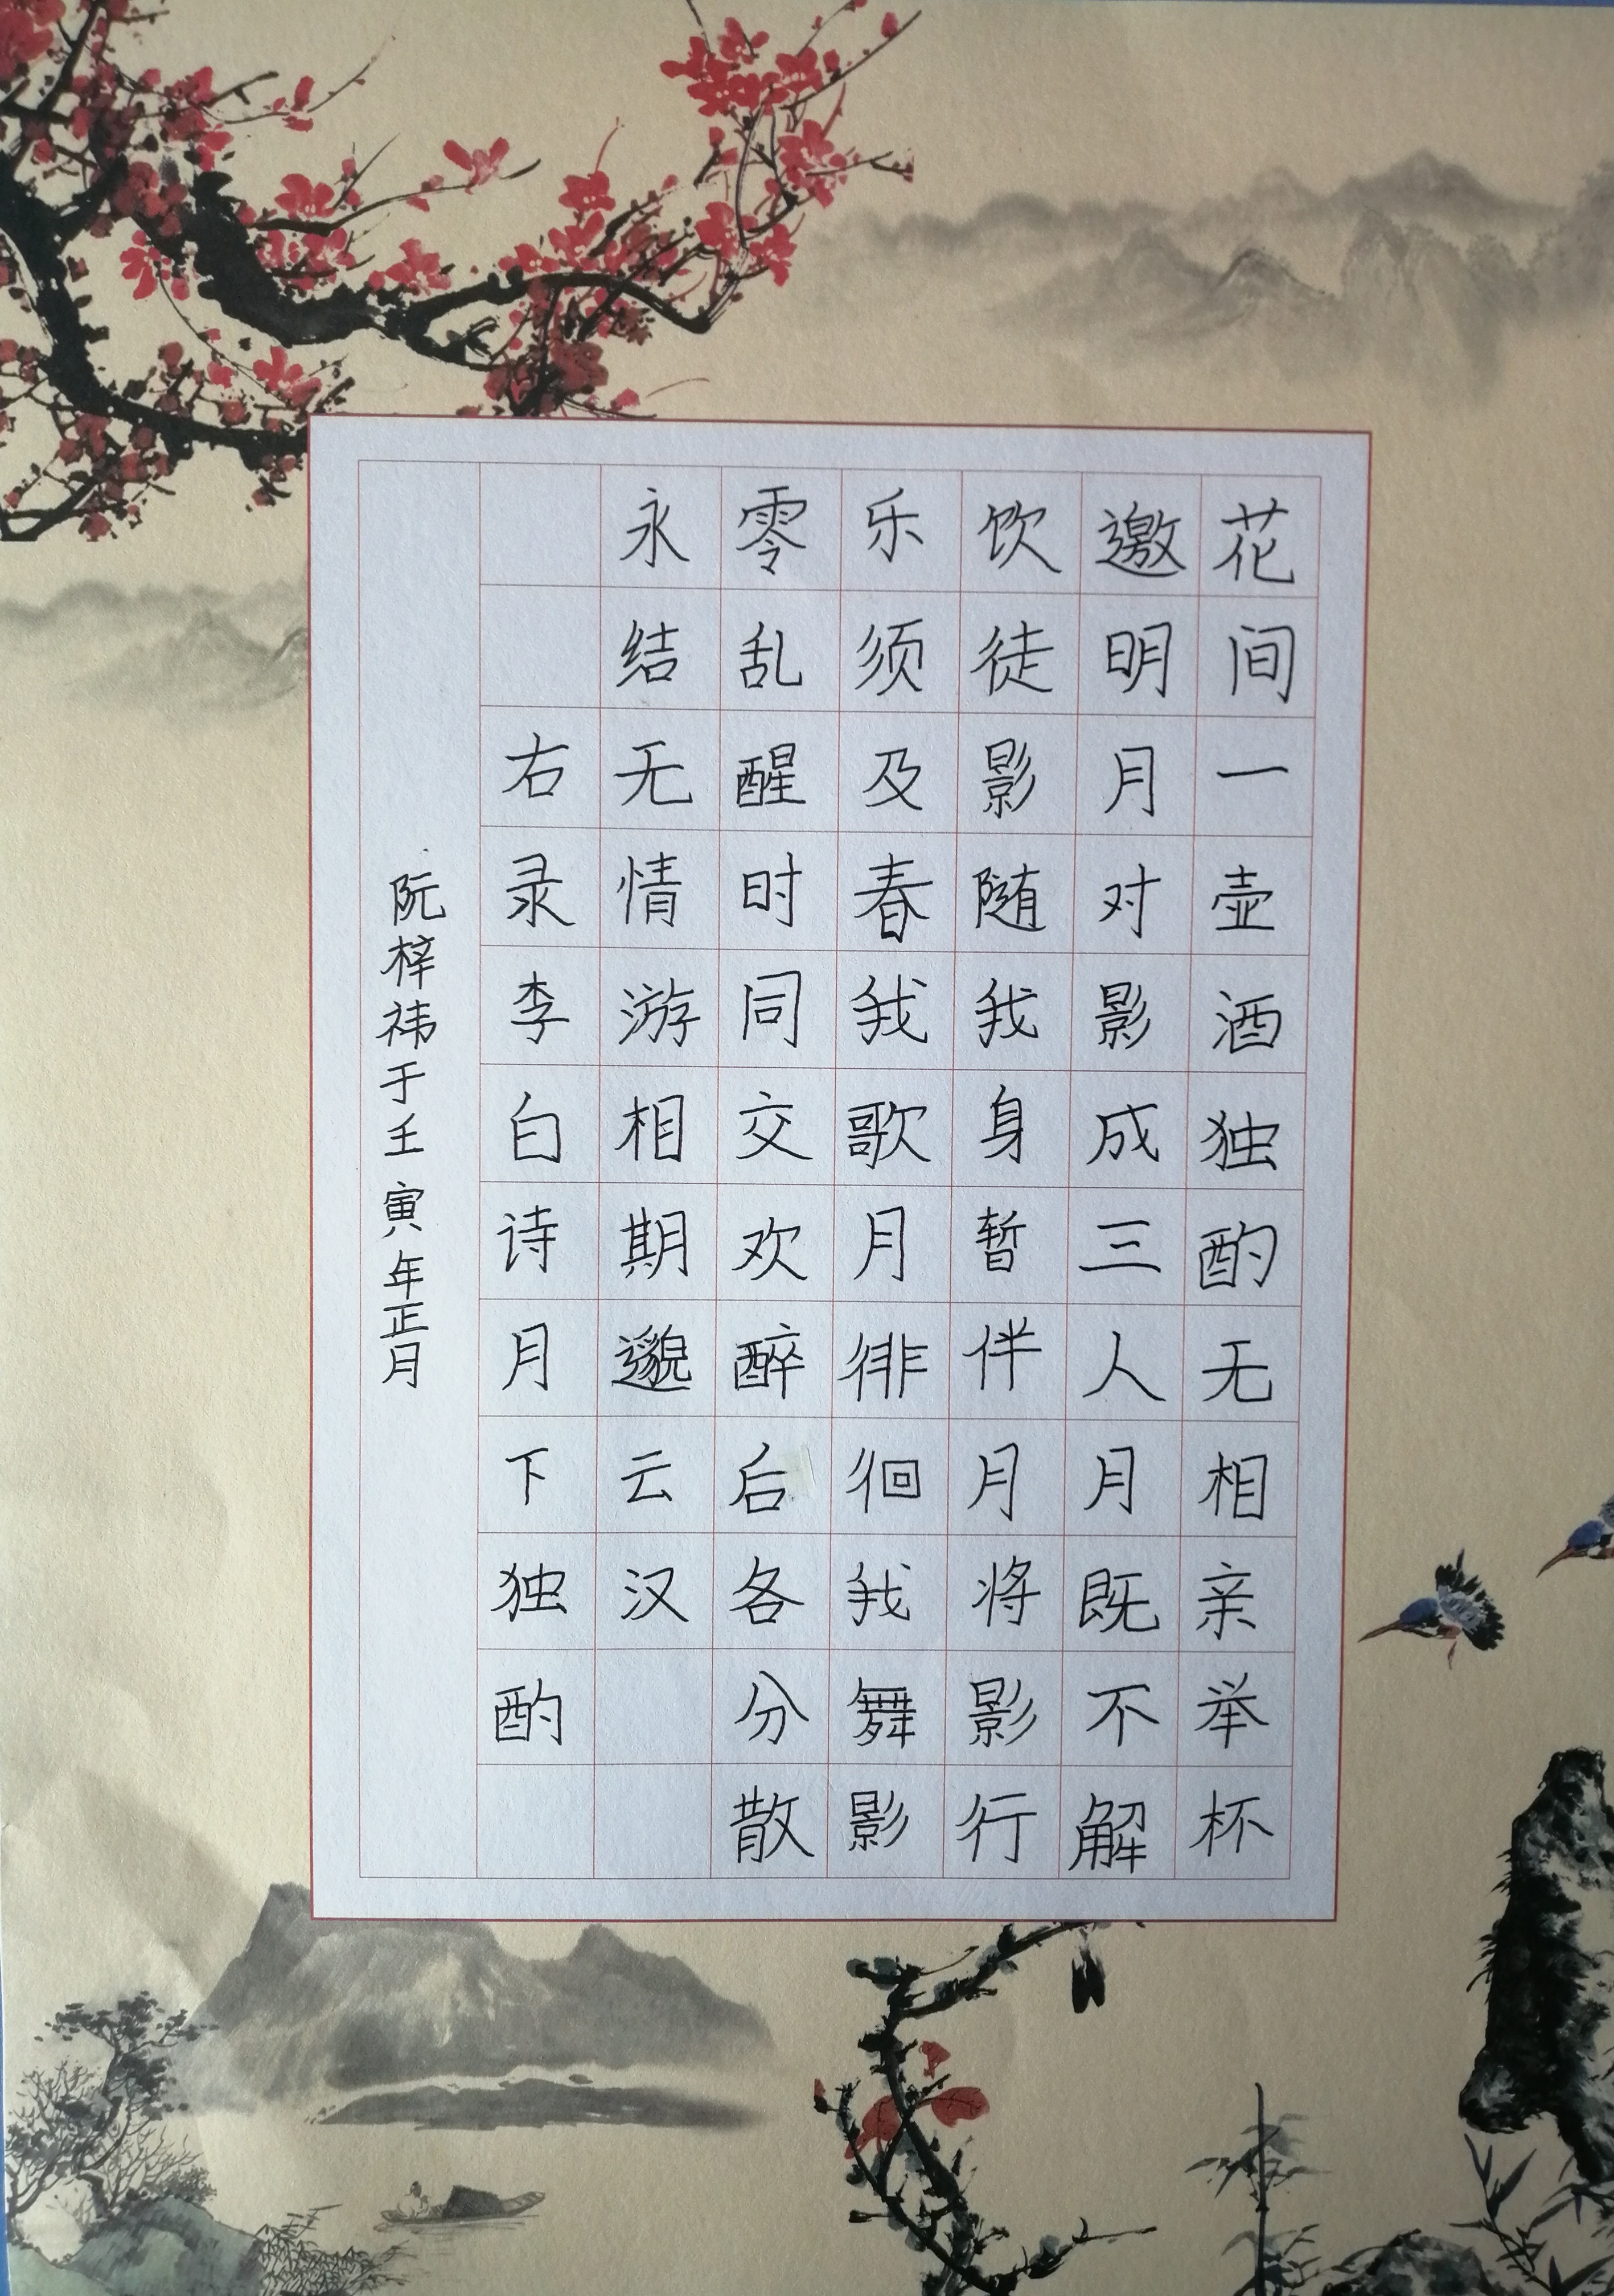 花间一壶酒独酌无相亲举杯
邀明月对影成三人月既不解
饮徒影随我身暂伴月将影行
乐须及春我歌月徘徊我舞影
零乱醒时同交欢醉后各分散
永结无情游相期邈云汉
右录李白诗月下独酌
阮梓祎于壬寅年正月